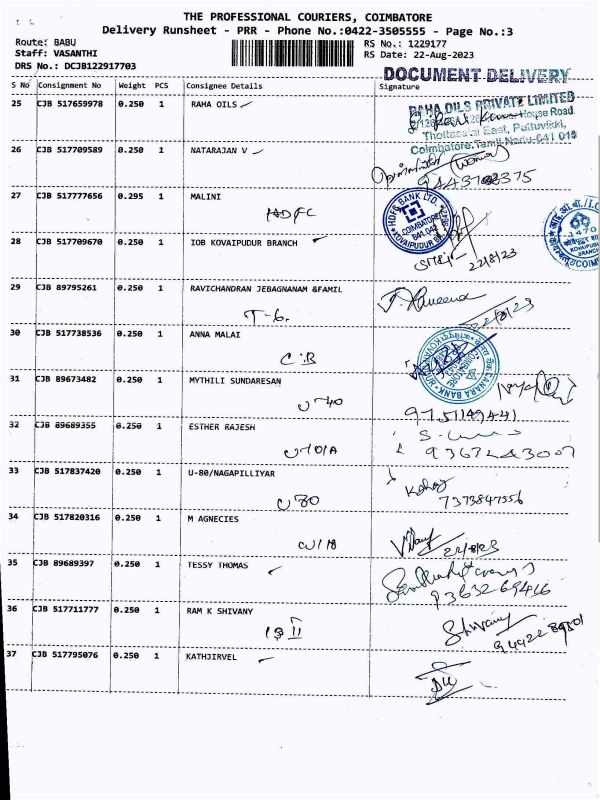 THE PROFESSIONAL COURIERS, COIMBATORE
Delivery Runsheet - PRR - Phone No.:0422-3505555 - Page No.:3
Route: BABU
RS No.: 1229177
Staff: VASANTHI
RS Date: 22-Aug-2023
DRS No.: DCJB122917703
DOCUMENT DELIVERY
S No Consignment No Weight PCS Consignee Details Signature
25 CJB 517659978 0.250 1 RAHA OILS
RAHA OILS PRIVATE LIMITED
House Road
East,
Coimbatore, Tamil Nadu-641
26 CJB 517709589 0.250 1 NATARAJAN V
27 CJB 517777656 0.295 1 MALINI
HDFC
HDFC BANK LTD.
COIMBATORE
641 042
KOVAIPUDUR
28 CJB 517709670 0.250 1 IOB KOVAIPUDUR BRANCH
22/8/23
29 CJB 89795261 0.250 1 RAVICHANDRAN JEBAGNANAM &FAMIL
T-6.
22/8/23
30 CJB 517738536 0.250 1 ANNA MALAI
C.B
CANARA BANK
31 CJB 89673482 0.250 1 MYTHILI SUNDARESAN
U 40
9751149441
32 CJB 89689355 0.250 1 ESTHER RAJESH
U 101A
33 CJB 517837420 0.250 1 U-80/NAGAPILLIYAR
U 80
7373847556
34 CJB 517820316 0.250 1 M AGNECIES
22/8/23
35 CJB 89689397 0.250 1 TESSY THOMAS
9363269416
36 CJB 517711777 0.250 1 RAM K SHIVANY
Shivany
37 CJB 517795076 0.250 1 KATHJIRVEL